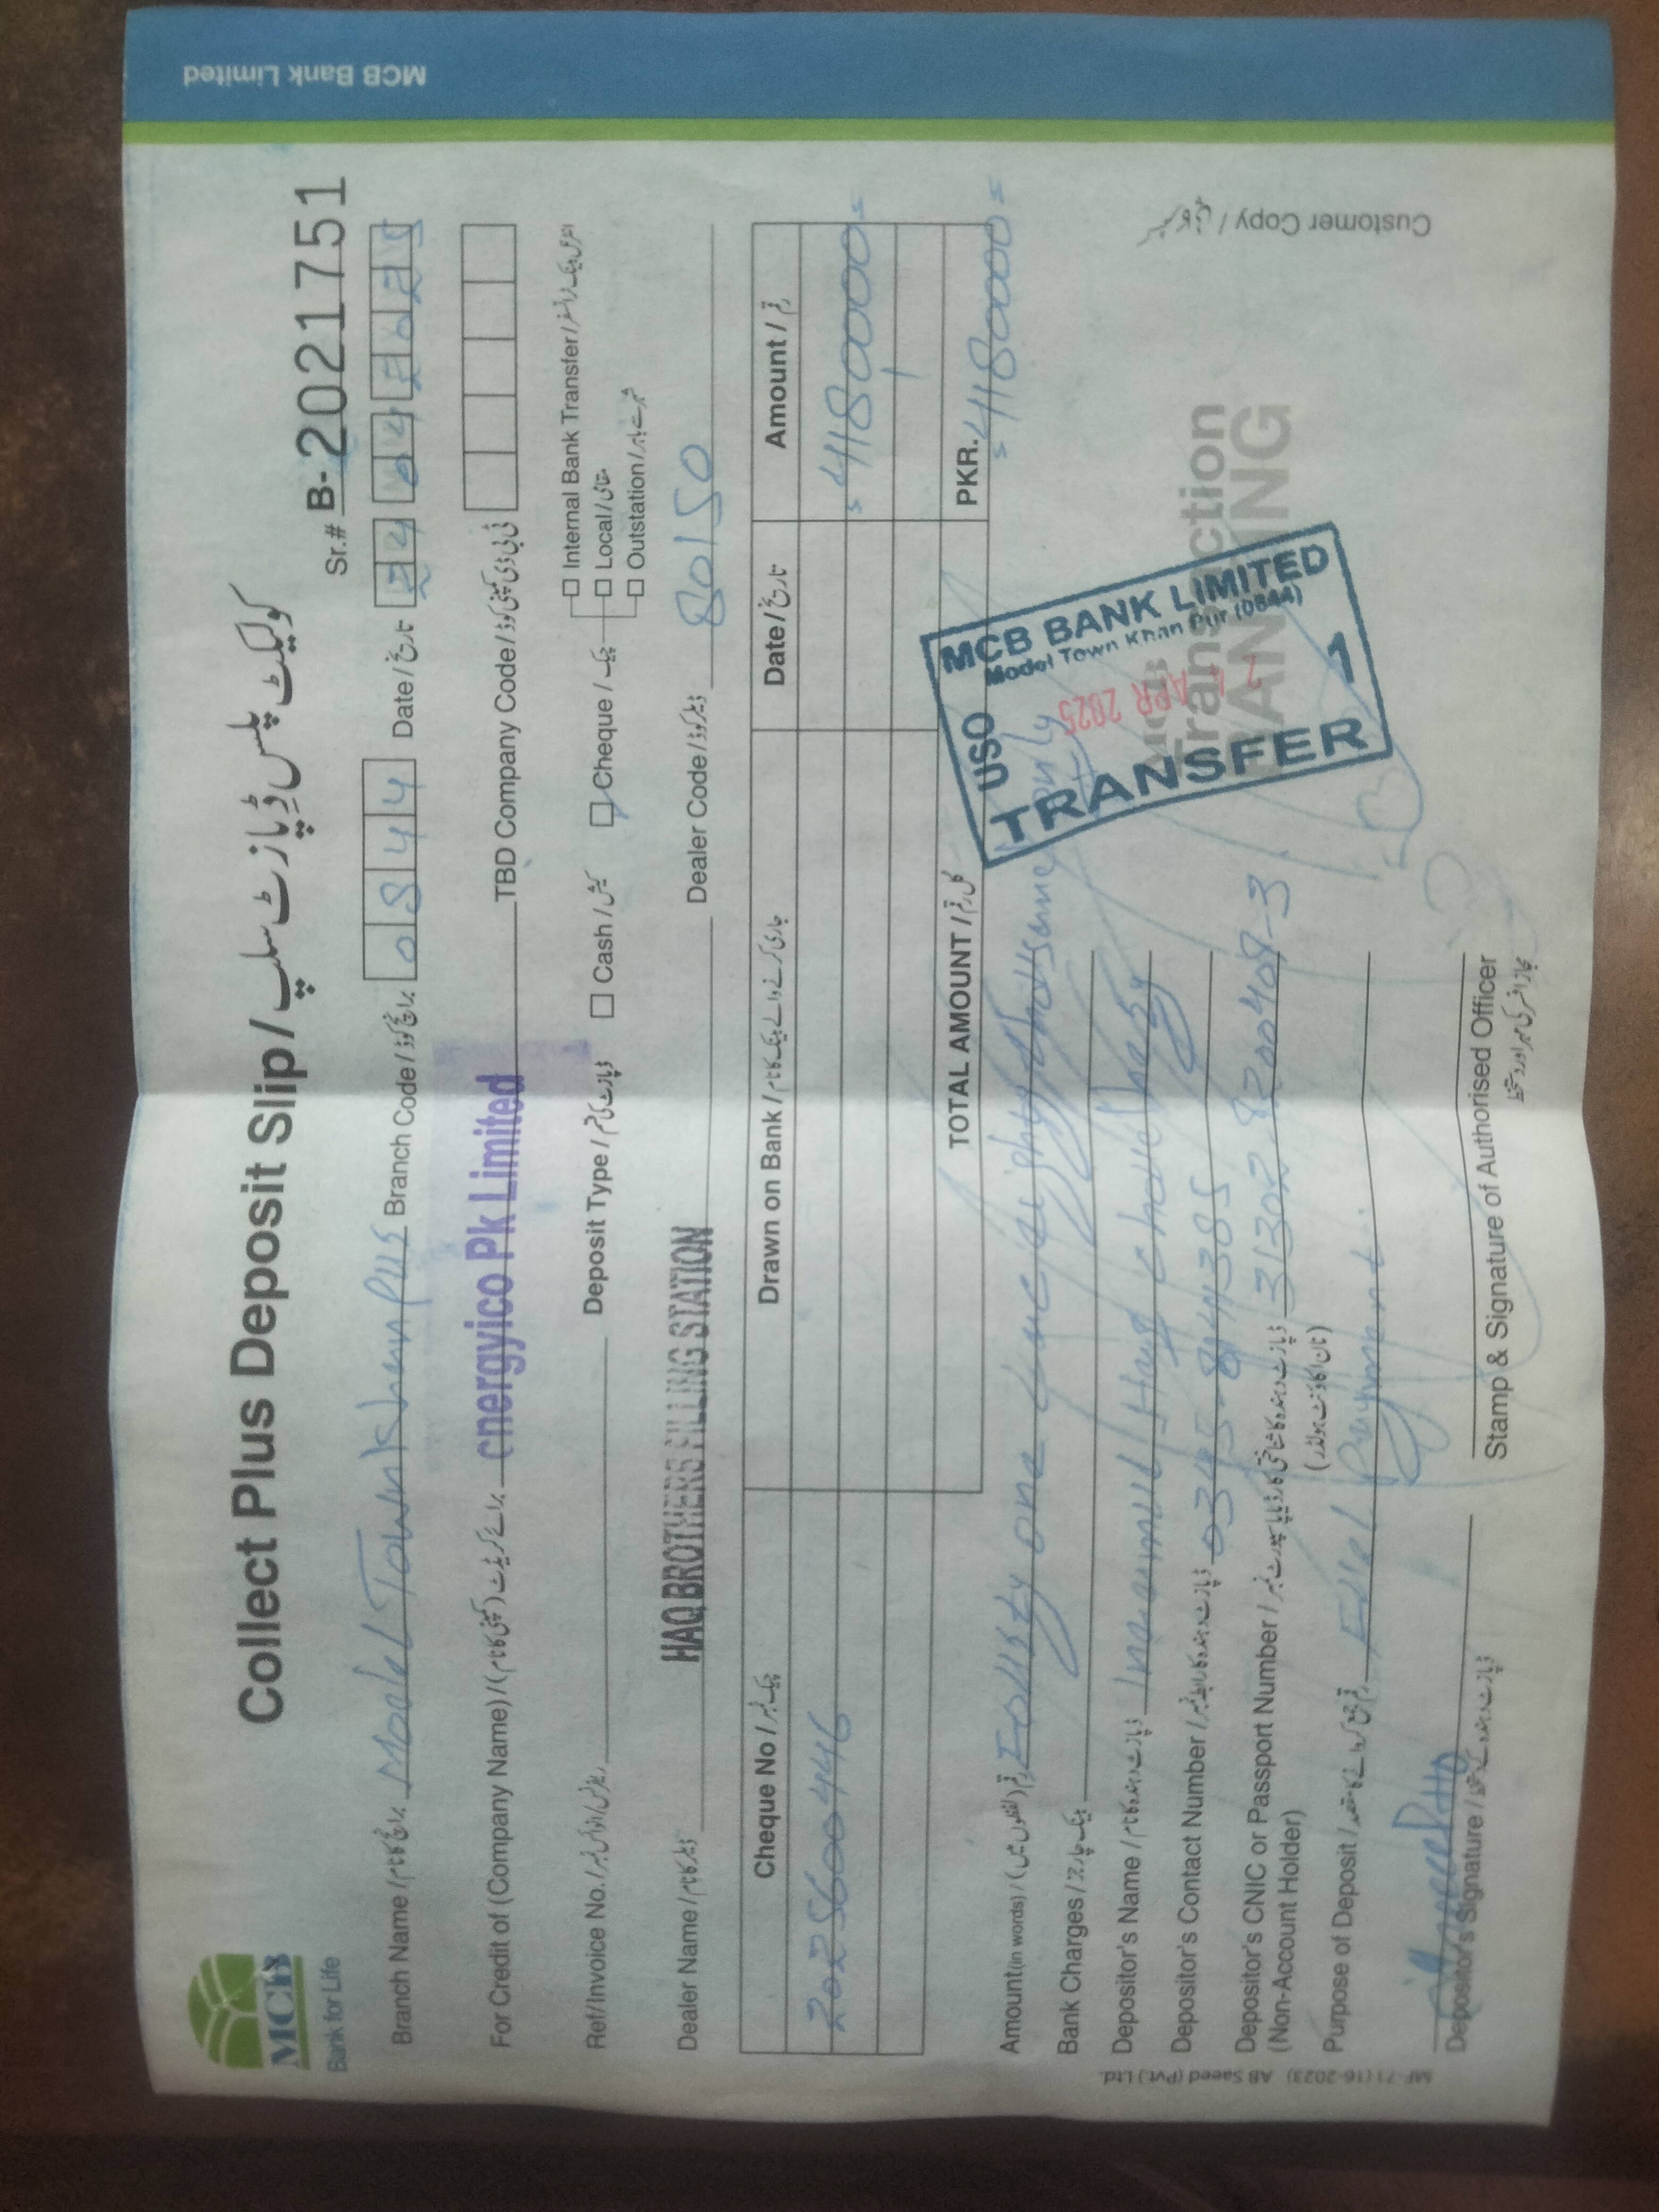 MCB Bank Limited
MCB
Bank for Life
Collect Plus Deposit Slip / کولیکٹ پلس ڈپازٹ سلپ
Sr.# B-2021751
Branch Name / برانچ کا نام Model Town Khanpur Branch Code / برانچ کوڈ 0844 Date / تاریخ 24 04 2025
For Credit of (Company Name) / (کمپنی کا نام) برائے کریڈٹ cnergyico Pk Limited TBD Company Code / ٹی بی ڈی کمپنی کوڈ
Ref/Invoice No. / Deposit Type / ڈپازٹ کی قسم Cash / کیش Cheque / چیک Internal Bank Transfer /
Local / مقامی
Outstation /
Dealer Name / ڈیلر کا نام HAQ BROTHERS FILLING STATION Dealer Code / ڈیلر کوڈ 80150
Cheque No / چیک نمبر Drawn on Bank / جاری کرنے والے بینک کا نام Date / تاریخ Amount / رقم
2025600446 = 4180000 =
TOTAL AMOUNT / کل رقم PKR. = 4180000 =
Amount (in words) / رقم (لفظوں میں) Fourty one Lac eighty thousand only
Bank Charges / بینک چارجز
Depositor's Name / ڈپازٹ دہندہ کا نام Inaamul Haq
Depositor's Contact Number / ڈپازٹ دہندہ کا رابطہ نمبر 0345-8414385
Depositor's CNIC or Passport Number / ڈپازٹ دہندہ کا شناختی کارڈ یا پاسپورٹ نمبر
(Non-Account Holder) (نان اکاؤنٹ ہولڈر)
Purpose of Deposit / رقم جمع کرانے کا مقصد Fuel Payment
Depositor's Signature / ڈپازٹ دہندہ کے دستخط
Stamp & Signature of Authorised Officer
مجاز افسر کی مہر اور دستخط
MCB BANK LIMITED
Model Town Khan Pur (0844)
USO
24 APR 2025
1
TRANSFER
Transaction
BANKING
Customer Copy /
MF-71(16-2023) AB Saeed (Pvt.) Ltd.